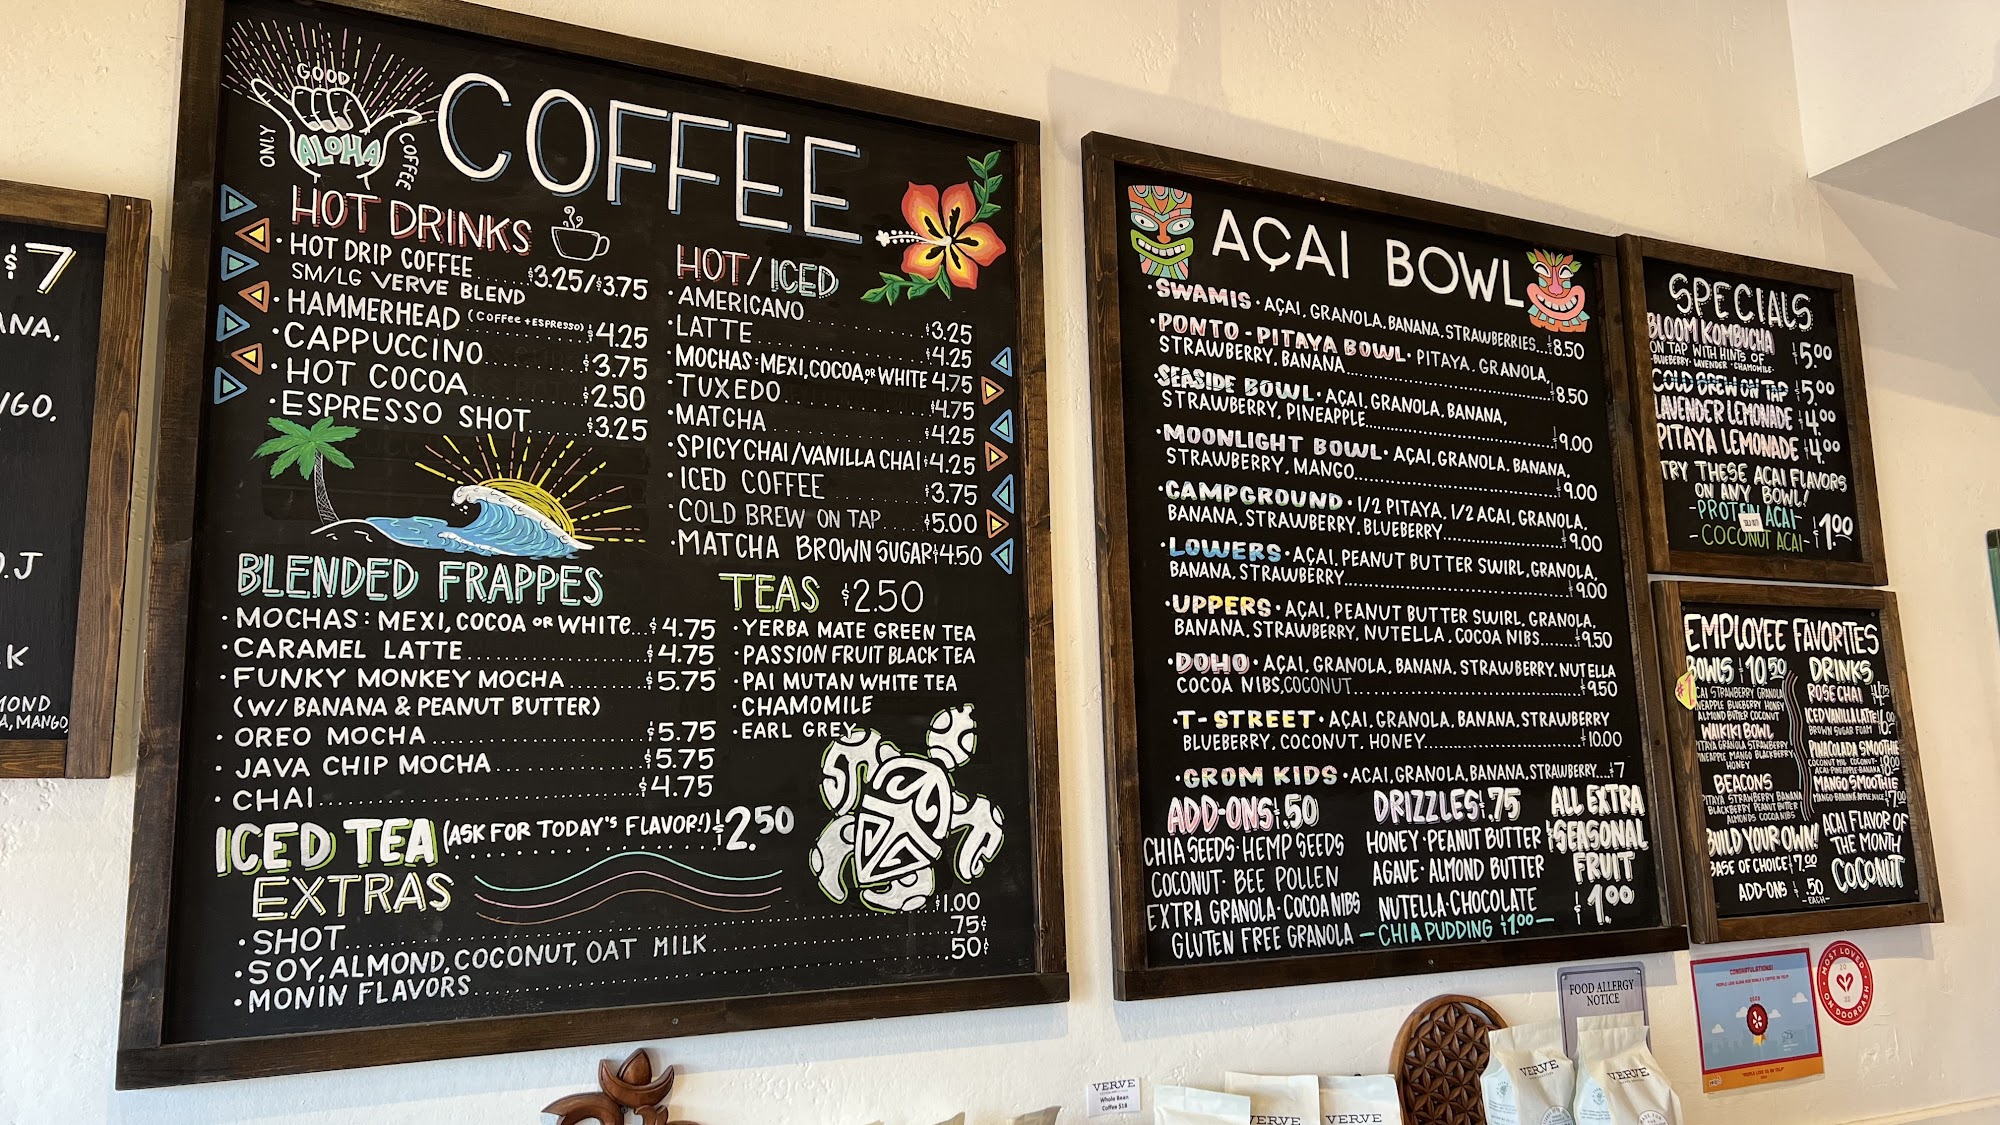 $7
ANA,
NGO,
O.J
K
MOND
A, MANGO,
GOOD
ONLY
ALOHA
COFFEE
COFFEE
HOT DRINKS
• HOT DRIP COFFEE.....$3.25/$3.75
SM/LG VERVE BLEND
• HAMMERHEAD (COFFEE + ESPRESSO) $4.25
• CAPPUCCINO..........$3.75
• HOT COCOA..........$2.50
• ESPRESSO SHOT.....$3.25
HOT/ICED
• AMERICANO..........$3.25
• LATTE..........$4.25
• MOCHAS: MEXI, COCOA, OR WHITE 4.75
• TUXEDO..........$4.75
• MATCHA..........$4.25
• SPICY CHAI/VANILLA CHAI $4.25
• ICED COFFEE..........$3.75
• COLD BREW ON TAP.....$5.00
• MATCHA BROWN SUGAR $4.50
BLENDED FRAPPES
• MOCHAS: MEXI, COCOA OR WHITE...$4.75
• CARAMEL LATTE..........$4.75
• FUNKY MONKEY MOCHA..........$5.75
(W/ BANANA & PEANUT BUTTER)
• OREO MOCHA..........$5.75
• JAVA CHIP MOCHA..........$5.75
• CHAI..........$4.75
TEAS $2.50
• YERBA MATE GREEN TEA
• PASSION FRUIT BLACK TEA
• PAI MUTAN WHITE TEA
• CHAMOMILE
• EARL GREY
ICED TEA (ASK FOR TODAY'S FLAVOR!) $2.50
EXTRAS
• SHOT..........$1.00
• SOY, ALMOND, COCONUT, OAT MILK..........75¢
• MONIN FLAVORS...........50¢
AÇAI BOWL
• SWAMIS • AÇAI, GRANOLA, BANANA, STRAWBERRIES...$8.50
• PONTO - PITAYA BOWL • PITAYA, GRANOLA,
STRAWBERRY, BANANA..........$8.50
• SEASIDE BOWL • AÇAI, GRANOLA, BANANA,
STRAWBERRY, PINEAPPLE..........$9.00
• MOONLIGHT BOWL • AÇAI, GRANOLA, BANANA,
STRAWBERRY, MANGO..........$9.00
• CAMPGROUND • 1/2 PITAYA, 1/2 ACAI, GRANOLA,
BANANA, STRAWBERRY, BLUEBERRY..........$9.00
• LOWERS • AÇAI, PEANUT BUTTER SWIRL, GRANOLA,
BANANA, STRAWBERRY..........$9.00
• UPPERS • AÇAI, PEANUT BUTTER SWIRL, GRANOLA,
BANANA, STRAWBERRY, NUTELLA, COCOA NIBS.....$9.50
• DOHO • AÇAI, GRANOLA, BANANA, STRAWBERRY, NUTELLA
COCOA NIBS, COCONUT..........$9.50
• T-STREET • AÇAI, GRANOLA, BANANA, STRAWBERRY
BLUEBERRY, COCONUT, HONEY..........$10.00
• GROM KIDS • AÇAI, GRANOLA, BANANA, STRAWBERRY....$7
ADD-ONS $.50
CHIA SEEDS • HEMP SEEDS
COCONUT • BEE POLLEN
EXTRA GRANOLA • COCOA NIBS
GLUTEN FREE GRANOLA
DRIZZLES $.75
HONEY • PEANUT BUTTER
AGAVE • ALMOND BUTTER
NUTELLA • CHOCOLATE
- CHIA PUDDING $1.00 -
ALL EXTRA
SEASONAL
FRUIT
$1.00
SPECIALS
BLOOM KOMBUCHA $5.00
ON TAP WITH HINTS OF
• BLUEBERRY • LAVENDER • CHAMOMILE •
COLD BREW ON TAP $5.00
LAVENDER LEMONADE $4.00
PITAYA LEMONADE $4.00
TRY THESE ACAI FLAVORS
ON ANY BOWL!
- PROTEIN ACAI -
SOLD OUT!
- COCONUT ACAI - $1.00
EMPLOYEE FAVORITES
BOWLS $10.50
ACAI STRAWBERRY GRANOLA
PINEAPPLE BLUEBERRY HONEY
ALMOND BUTTER COCONUT
WAIKIKI BOWL
PITAYA GRANOLA STRAWBERRY
PINEAPPLE MANGO BLACKBERRY
HONEY
BEACONS
PITAYA STRAWBERRY BANANA
BLACKBERRY PEANUT BUTTER
ALMONDS COCOA NIBS
BUILD YOUR OWN!
BASE OF CHOICE $7.00
ADD-ONS $.50
- EACH -
DRINKS
ROSE CHAI $4.75
ICED VANILLA LATTE $6.00
BROWN SUGAR FOAM
PINACOLADA SMOOTHIE
COCONUT MILK COCONUT $8.00
ACAI • PINEAPPLE • BANANA
MANGO SMOOTHIE
MANGO • BANANA • APPLE JUICE $7.00
ACAI FLAVOR OF
THE MONTH
COCONUT
FOOD ALLERGY
NOTICE
CONGRATULATIONS!
MOST LOVED
ON DOORDASH
VERVE
Whole Bean
Coffee $18
VERVE
VERVE
VERVE
VERVE